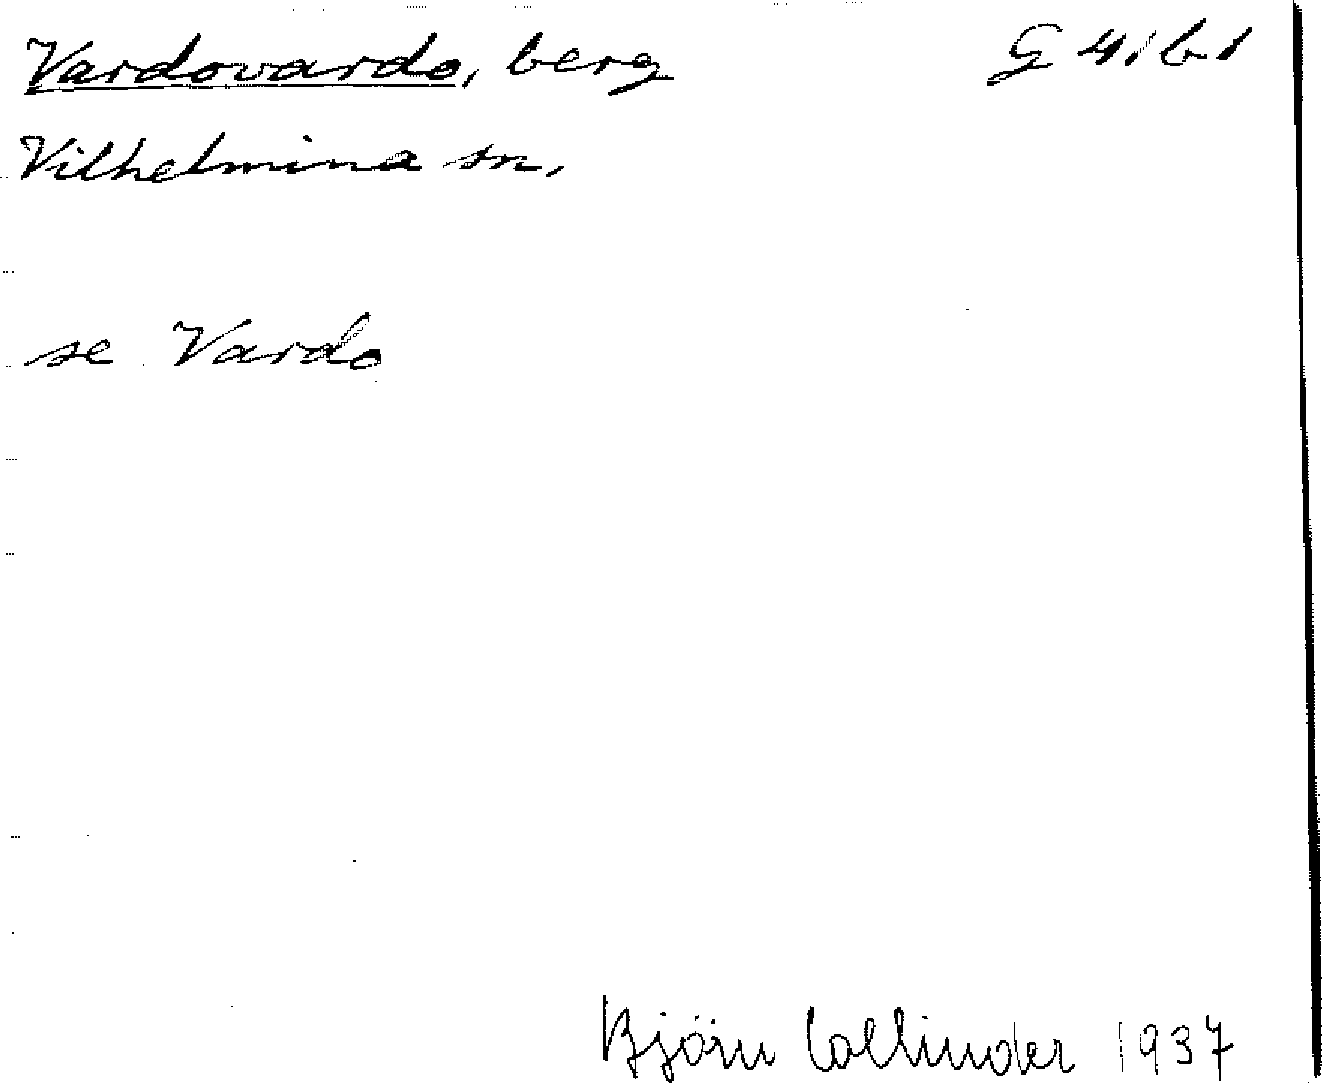 Vardovardo, berg G 4, b 1
Vilhelmina sn.
se Vardo
Björn Collinder 1937